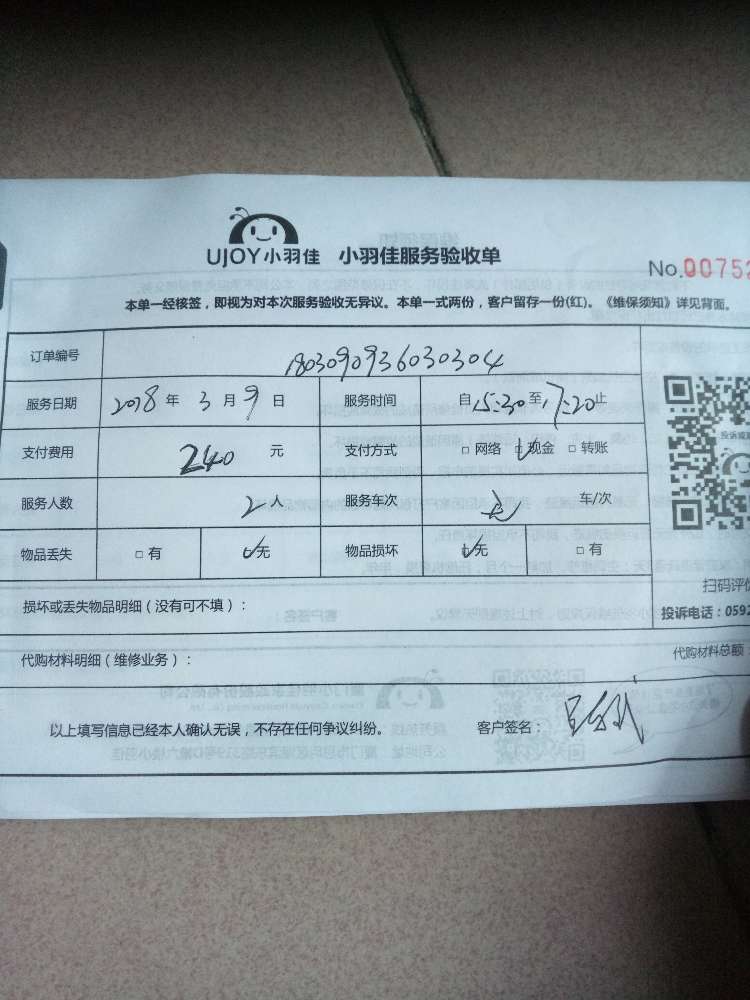 UJOY小羽佳 小羽佳服务验收单
No.00752
本单一经核签，即视为对本次服务验收无异议。本单一式两份，客户留存一份(红)。《维保须知》详见背面。
订单编号 1803090936030304
服务日期 2018年3月9日 服务时间 自15:30至17:20止
支付费用 240元 支付方式 □网络 ☑现金 □转账
服务人数 2人 服务车次 车/次
物品丢失 □有 ☑无 物品损坏 ☑无 □有
扫码评价
损坏或丢失物品明细（没有可不填）：
投诉电话：0592
代购材料明细（维修业务）：
代购材料总额：
以上填写信息已经本人确认无误，不存在任何争议纠纷。 客户签名：